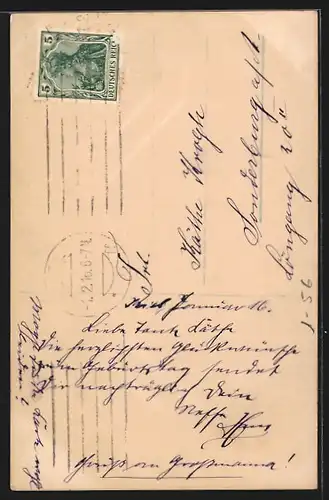 5 5
DEUTSCHES REICH
2.16.6-7N.
Frl.
Käthe Krogh
Löngang 20
Kiel Januar 16.
Liebe Tante Käthe
Die herzlichsten Glückwünsche
zum Geburtstag sendet
Dir nachträglich Dein
Neffe Hans
Gruß an Großmama!
1-56